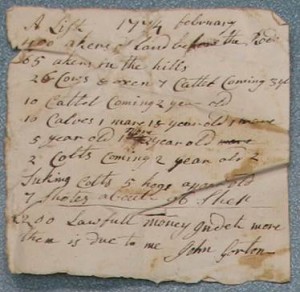 A List 1774 february
400 akers of land before the Rode
65 akers in the hills
26 Cows & oxen 7 Cattel Coming 3 yl
10 Cattel Coming 2 year old
10 Calves 1 mare 18 year old 1 mare
5 year old 1 mare 2 year old
2 Colts Coming 2 year old 2
Suking Colts 5 hogs a year old
7 Shotes about 96 Shep
2200 Lawfull money
them is due to me John Orton